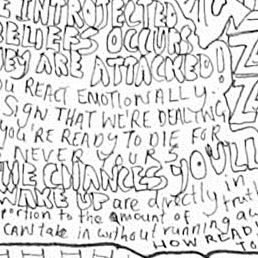 E INTROJECTED
BELIEFS OCCURS
THEY ARE ATTACKED!
YOU REACT EMOTIONALLY.
SIGN THAT WE'RE DEALING
YOU'RE READY TO DIE FOR
NEVER YOUR'S YOU'LL
THE CHANCES
WAKE UP are directly in
portion to the amount of truth
CAN take in without running aw
HOW READY
TO